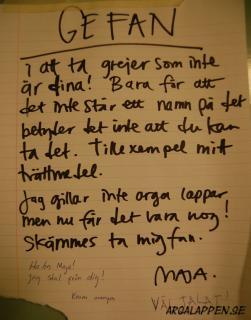 GE FAN
i att ta grejer som inte
är dina! Bara för att
det inte står ett namn på det
betyder det inte att du kan
ta det. Till exempel mitt
tvättmedel.
Jag gillar inte arga lappar
men nu får det vara nog!
Skämmes ta mig fan.
MAJA.
Hej Maja!
Jag stal från dig!
Kram
VÄL TALAT!
ARGALAPPEN.SE